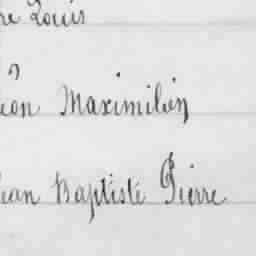 re Louis
éon Maximilien
Jean Baptiste Pierre